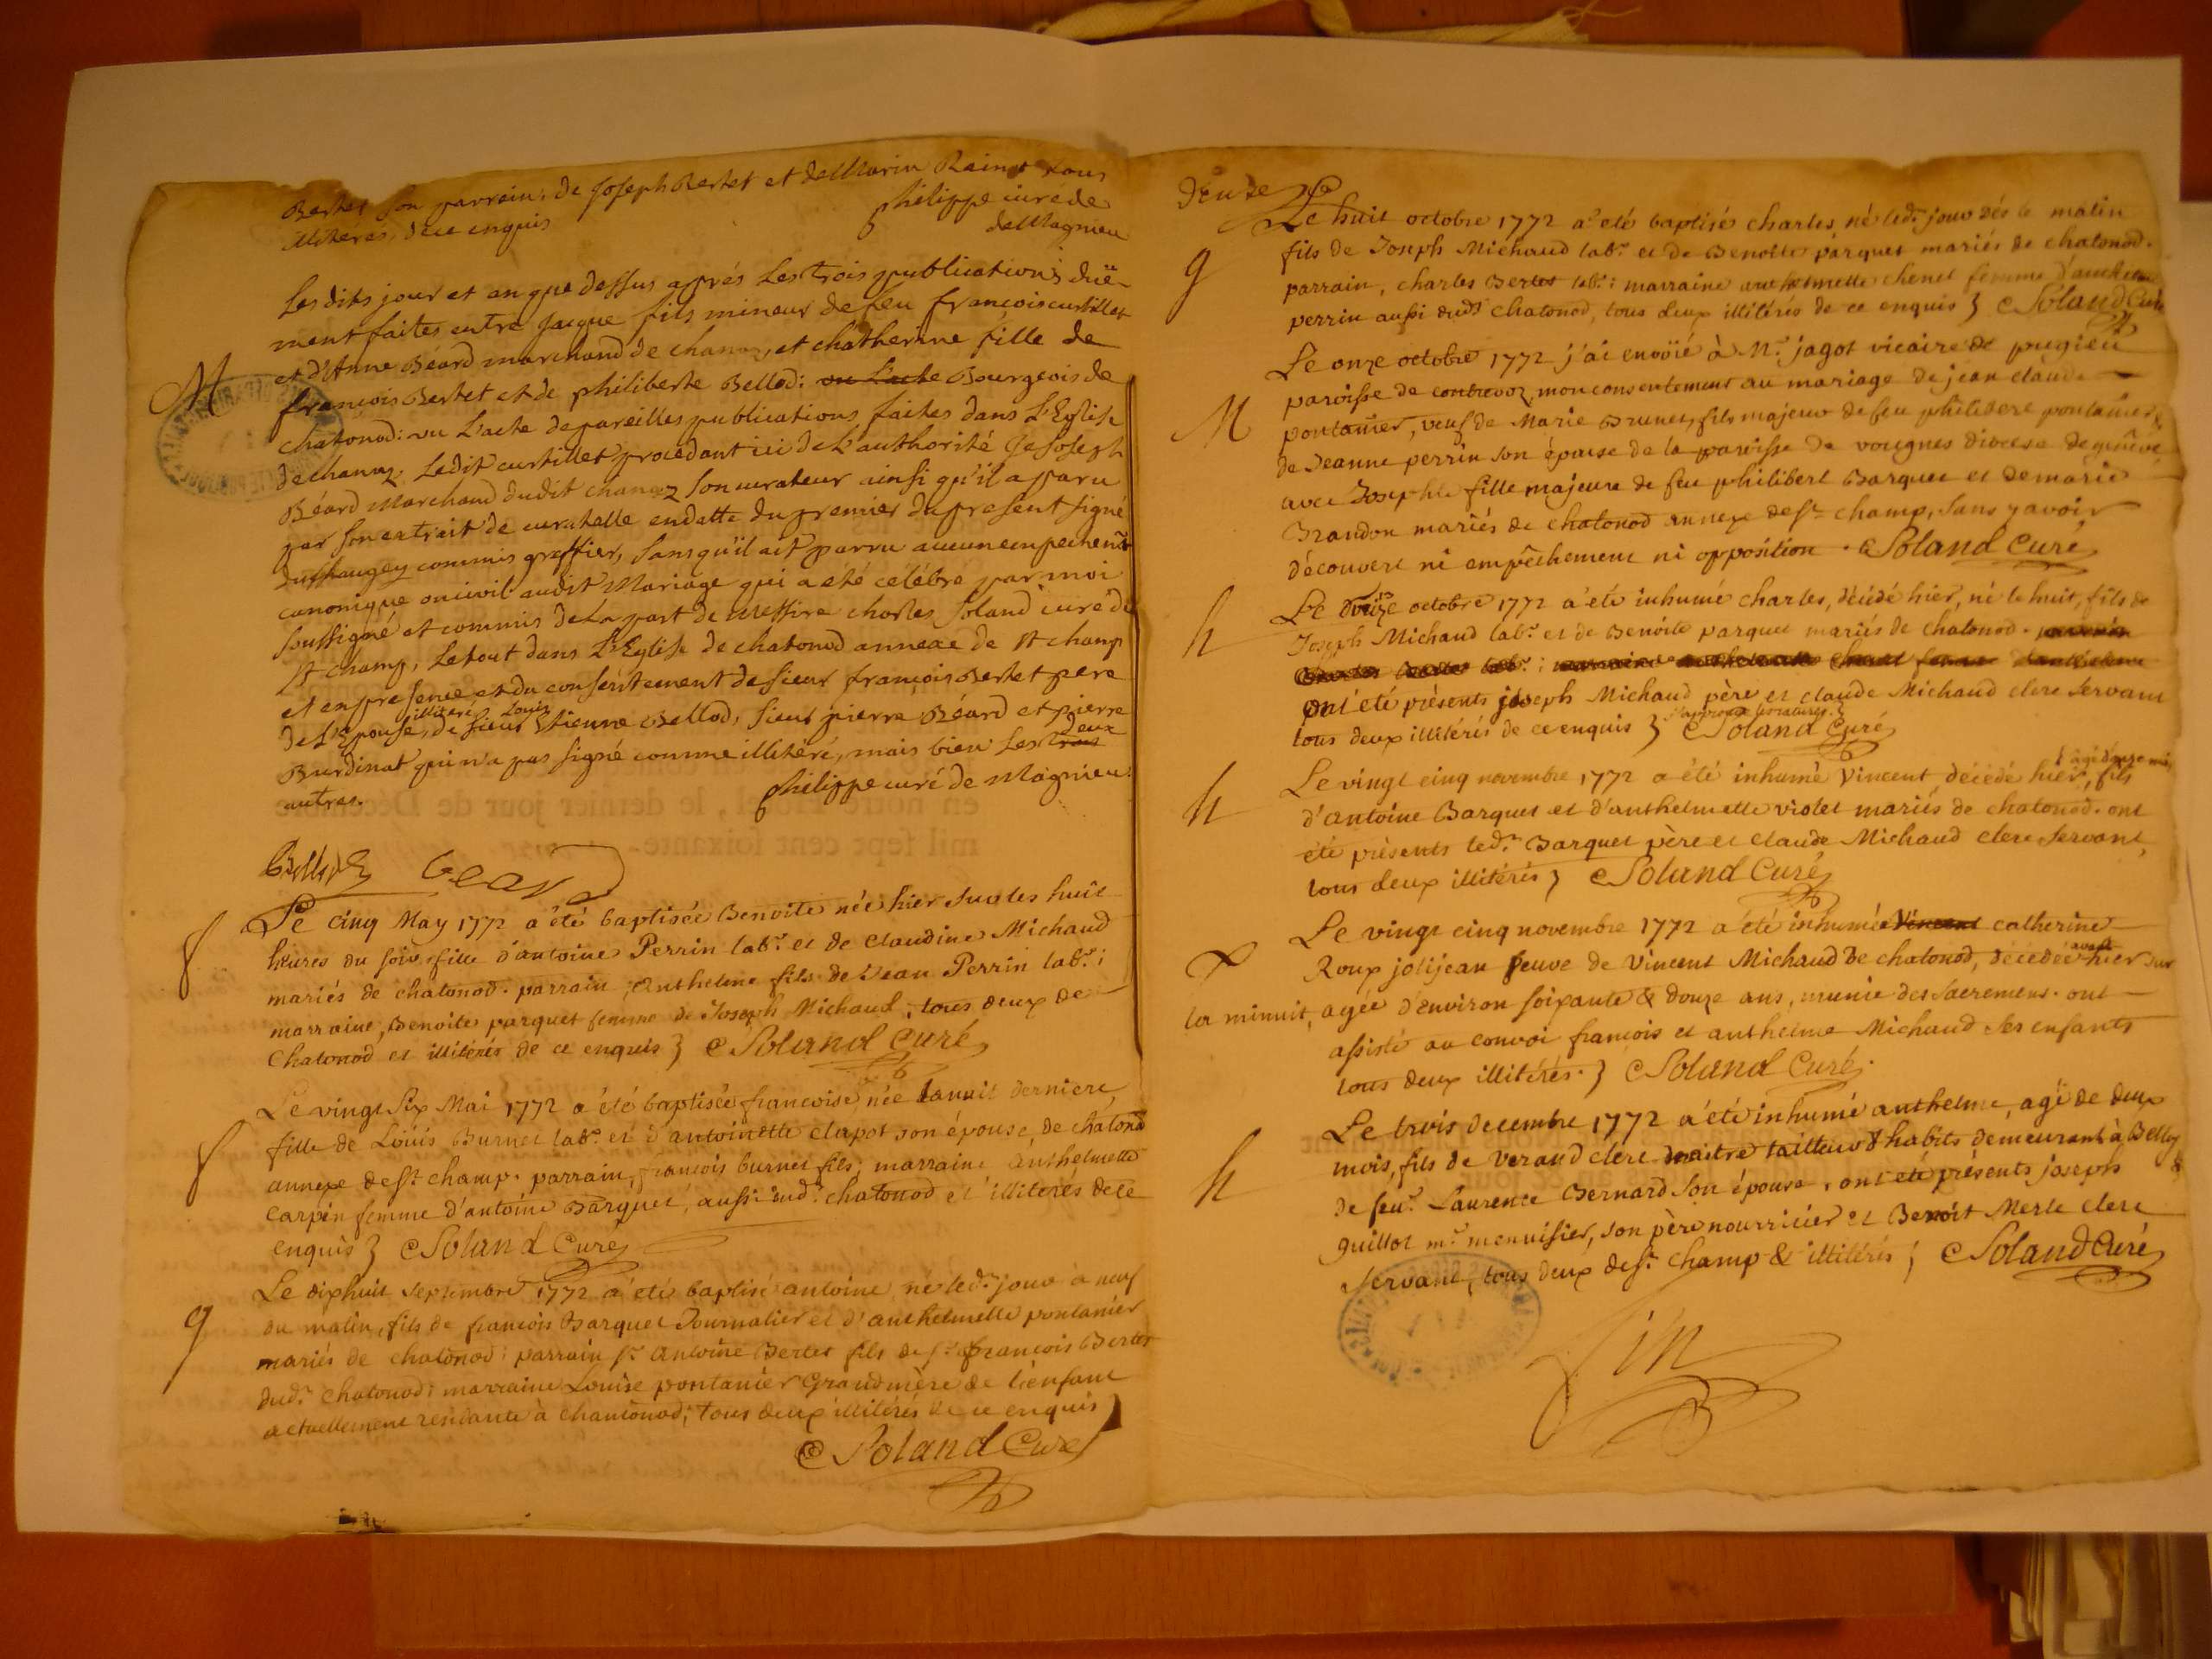 Bertet son parrain, de Joseph Bertet et de Marin Rainet tous
illitérés de ce enquis philippe curé de
de Magnieu
M
Les dits jour et an que dessus après Les trois publications duë-
ment faites entre Jacque fils mineur de feu françois curtillet
et d'Anne Béard marchand de chanaz, et chatherine fille de
françois Bertet et de philiberte Bellod: vu L'acte Bourgeois de
chatonod: vu L'acte de pareilles publications faites dans L'Eglise
de chanaz. Ledit curtillet procedant ici de L'authorité de Joseph
Béard Marchand dudit chanaz son curateur ainsi qu'il a paru
par son extrait de curatelle en datte du premier du present signé
commis greffier, sans qu'il ait parru aucun empechemt
canonique ou civil audit Mariage qui a eté célébré par moi
soussigné et commis de La part de Messire charles Soland curé de
St champ, Le tout dans L'Eglise de chatonod annexe de St champ
et en presence et du consentement de sieur françois Bertet pere
de L'Epouse, illiteré de sieur Louis Etienne Bellod, sieur pierre Béard et pierre
Burdinat qui n'a pas signé comme illitéré, mais bien Les trois deux
autres. philippe curé de Magnieu.
Bellod Beard
f
Le cinq May 1772 a été baptisée Benoite née hier sur les huit
heures du soir fille d'antoine Perrin labr. et de claudine Michaud
mariés de chatonod. parrain, anthelme fils de Jean Perrin labr.;
marraine, Benoite parquet femme de Joseph Michaud, tous deux de
Chatonod et illitérés de ce enquis } C Soland Curé
f
Le vingt six Mai 1772 a été baptisée françoise née la nuit derniere
fille de Loüis Burnet labr. et d'antoinette clapot son épouse, de chatonod
annexe de st. champ. parrain, françois burnet fils; marraine anthelmette
carpin femme d'antoine Barquet, aussi dudt. chatonod et illiterés de ce
enquis } C Soland Curé
g
Le dixhuit septembre 1772 a été baptisé antoine né ledt. jour à neuf
du matin, fils de françois Barquet Journalier et d'anthelmette pontanier
mariés de chatonod; parrain sr. antoine Bertet fils de sr. françois Bertet
dudt. chatonod; marraine Louise pontanier Grandmère de l'enfant
actuellement residante à chantonod; tous deux illitérés de ce enquis
C Soland Curé
deuze
g
Le huit octobre 1772 a été baptisé charles, né ledt. jour dès le matin
fils de Joseph Michaud labr. et de Benoite parquet mariés de chatonod.
parrain, charles Bertet labr.; marraine anthelmette chenet femme d'anthelme
perrin aussi dudt. chatonod, tous deux illitérés de ce enquis } C Soland Curé
M
Le onze octobre 1772 j'ai envoïé à Mr. jagot vicaire de pugieu
paroisse de contrevoz, mon consentement au mariage de jean claude
pontanier, veuf de Marie Brunet, fils majeur de feu philibert pontanier &
de Jeanne perrin son épouse de la paroisse de vongnes diocese de genève
avec Josephte fille majeure de feu philibert Barquet et de marie
Brandon mariés de chatonod annexe de st. champ, sans y avoir
découvert ni empêchement ni opposition. C Soland Curé
h
Le treize octobre 1772 a été inhumé charles, décédé hier, né le huit, fils de
Joseph Michaud labr. et de Benoite parquet mariés de chatonod. parrain
charles Bertet labr.; marraine anthelmette chenet femme d'anthelme
ont été présents joseph Michaud père et claude Michaud clerc servant
tous deux illitérés de ce enquis } C Soland Curé
h
Le vingt cinq novembre 1772 a été inhumé Vincent, décédé hier, agé douze mois, fils
d'antoine Barquet et d'anthelmette violet mariés de chatonod. ont
été présents ledt. Barquet père et claude Michaud clerc servant,
tous deux illitérés } C Soland Curé
Le vingt cinq novembre 1772 a été inhumée Vincent catherine
Roux jolijean veuve de Vincent Michaud de chatonod, décédée avant hier sur
la minuit, agée d'environ soixante & douze ans, munie des sacremens. ont
assisté au convoi françois et anthelme Michaud ses enfants
tous deux illitérés. } C Soland Curé.
h
Le trois decembre 1772 a été inhumé anthelme, agé de deux
mois, fils de Veraud clerc maitre tailleur d'habits demeurant à Belley &
de feue. Laurence Bernard son épouse, ont été présents joseph
guillot mr. menuisier, son père nourricier et Benoit Merle clerc
servant, tous deux de st. champ & illitérés } C Soland Curé
fin